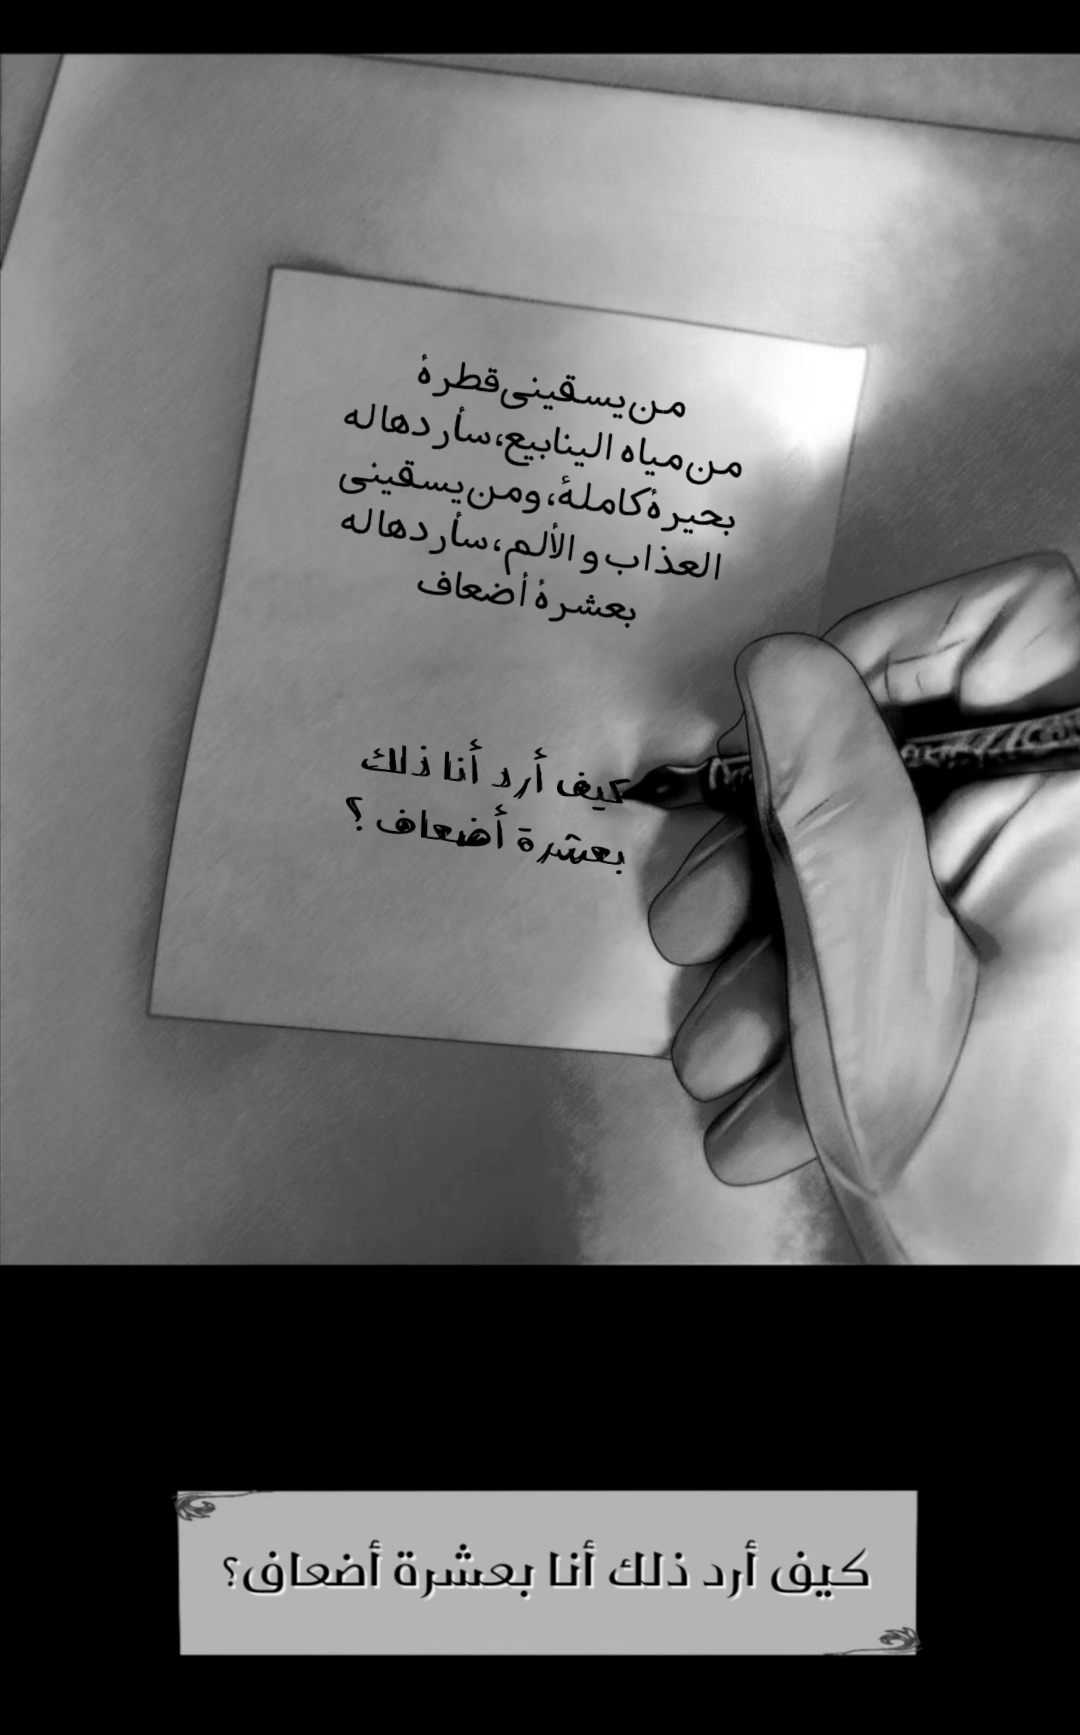 من يسقينى قطرۀ
من مياه الينابيع، سأردها له
بحيرۀ كاملۀ، ومن يسقينى
العذاب و الألم، سأردها له
بعشرۀ أضعاف
كيف أرد أنا ذلك
بعشرة أضعاف ؟
كيف أرد ذلك أنا بعشرة أضعاف؟